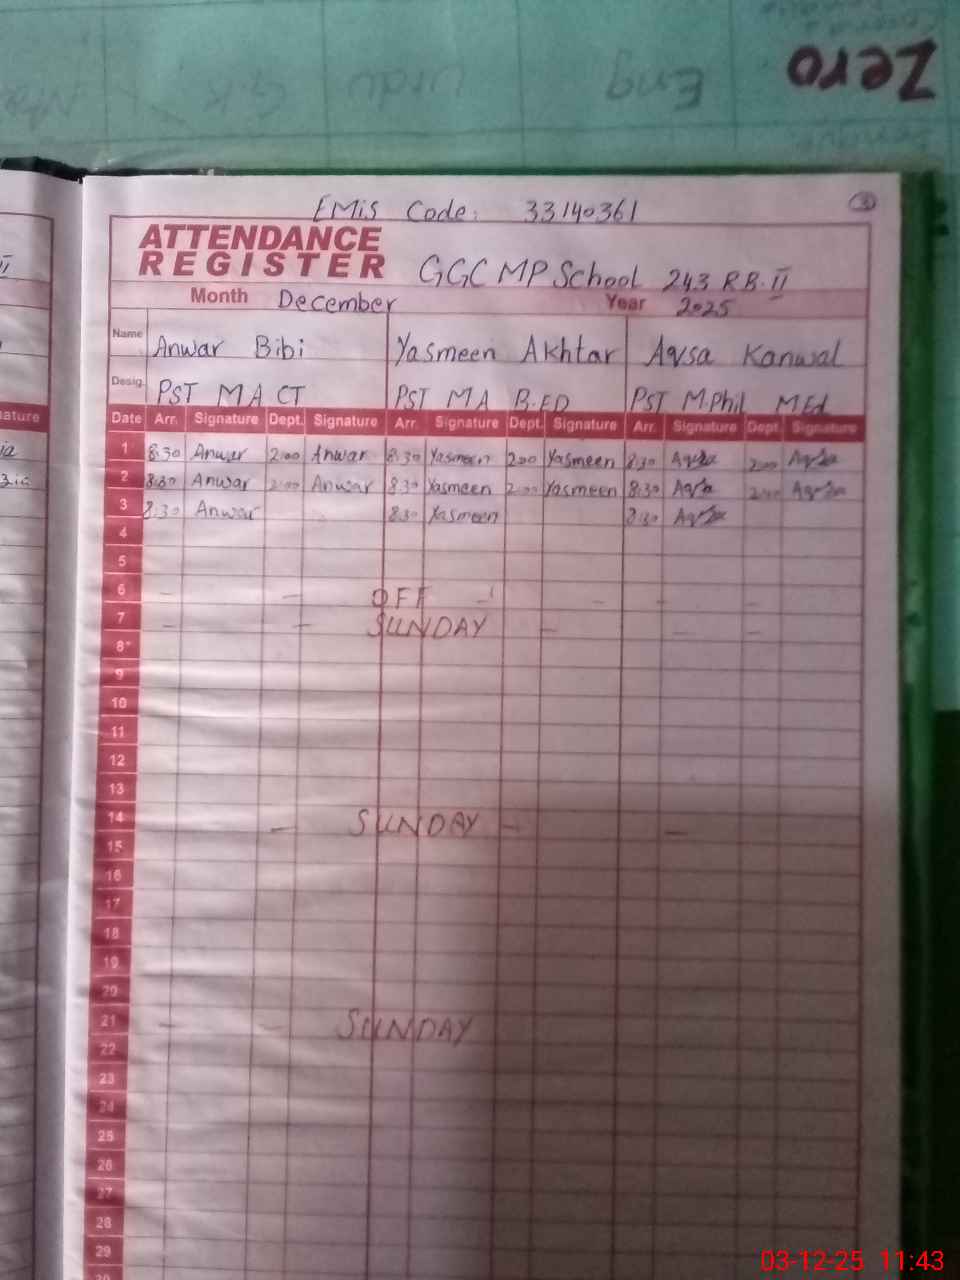 Zero
Eng
Urdu
G.K
EMis Code: 33140361
3
ATTENDANCE
REGISTER GGCMP School 243 RB.II
Month December Year 2025
Name Anwar Bibi Yasmeen Akhtar Aqsa Kanwal
Desig. PST M A CT PST M A B.ED PST M.Phil M.Ed
Date Arr. Signature Dept. Signature Arr. Signature Dept. Signature Arr. Signature Dept. Signature
1 8:30 Anwar 2:00 Anwar 8:30 Yasmeen 2:00 Yasmeen 8:30 Aqsa 2:00 Aqsa
2 8:30 Anwar 2:00 Anwar 8:30 Yasmeen 2:00 Yasmeen 8:30 Aqsa 2:00 Aqsa
3 8:30 Anwar 8:30 Yasmeen 8:30 Aqsa
4
5
6 OFF
7 SUNDAY
8
9
10
11
12
13
14 SUNDAY
15
16
17
18
19
20
21 SUNDAY
22
23
24
25
26
27
28
29
30
03-12-25 11:43